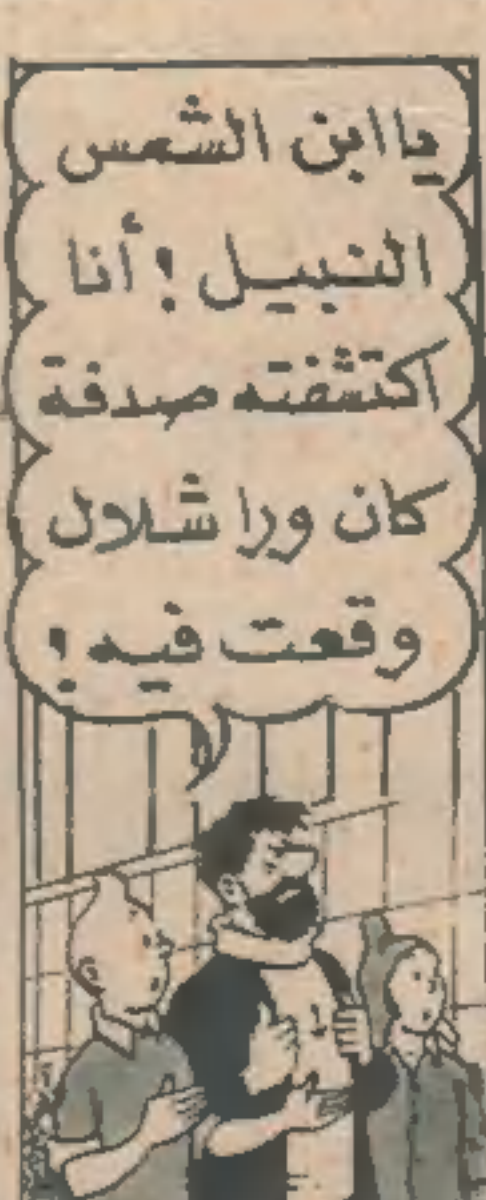 يا ابن الشمس
النبيل! أنا
اكتشفته صدفة
كان ورا شلال
وقعت فيه!